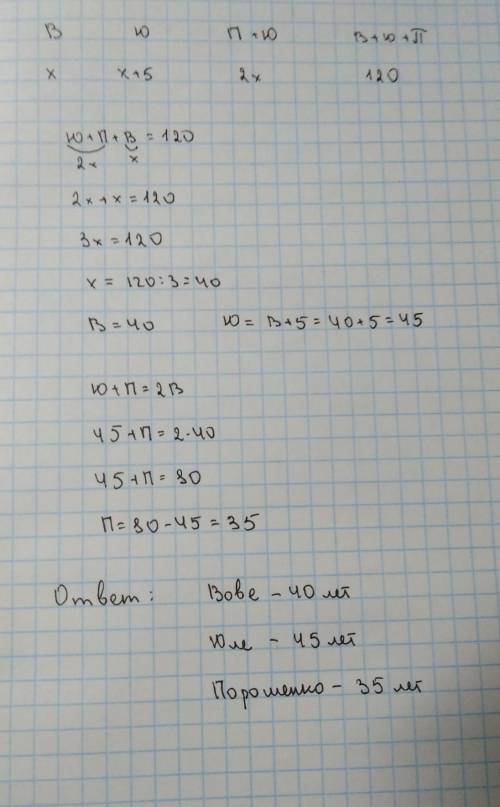 В Ю П+Ю В+Ю+П
х х+5 2х 120
Ю+П+В=120
2х х
2х+х=120
3х=120
х= 120:3=40
В=40 Ю= В+5=40+5=45
Ю+П=2В
45+П=2·40
45+П=80
П=80-45=35
Ответ: Вове - 40 лет
Юле - 45 лет
Порошенко - 35 лет